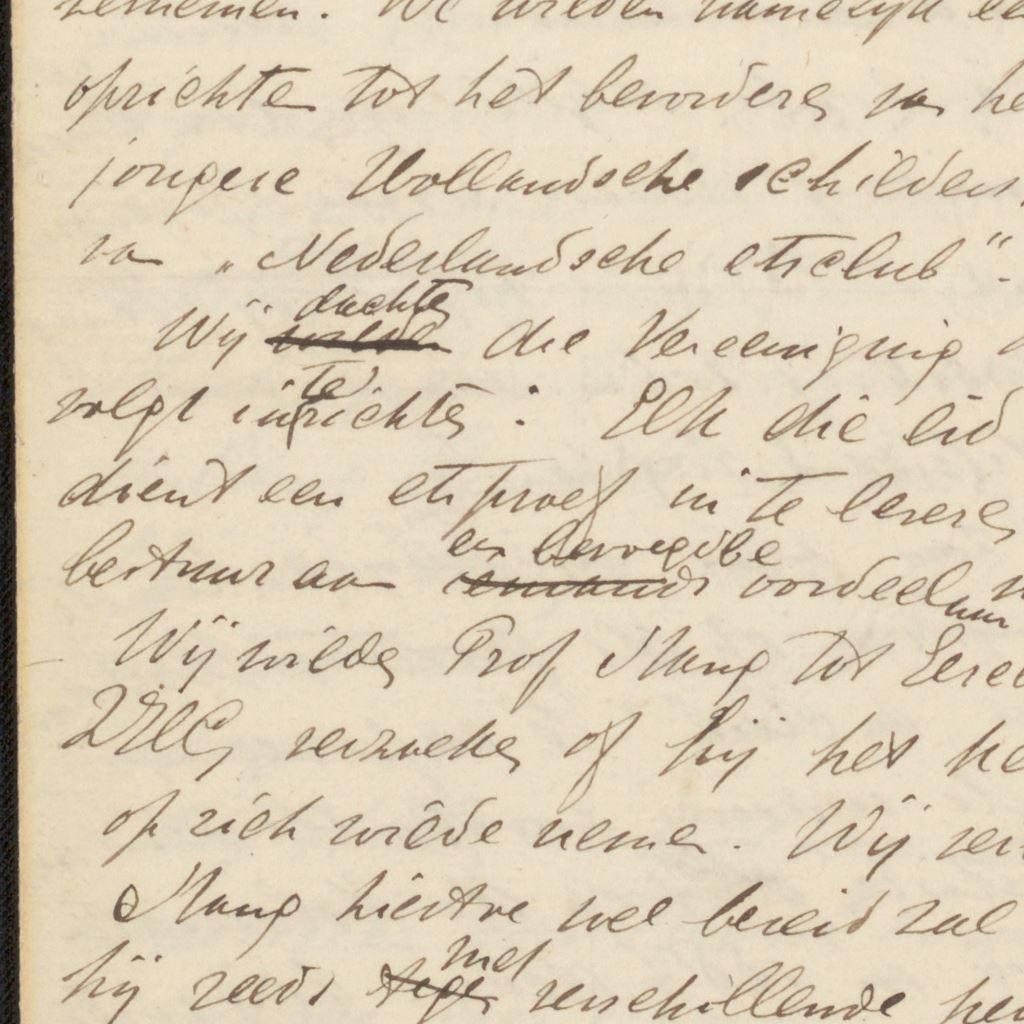 vernemen. We wilden namelijk ee
oprichten tot het bevorderen van he
jongere Hollandsche schilders.
van „Nederlandsche etsclub".
dachten
Wij wilden die Vereeniging
te
volgt inrichten: Elk die lid
dient een etsproef in te leveren
een bevoegde
bestuur aan iemands oordeel
Wij wilden Prof Stang tot Eere
verzoeken of hij het
op zich wilde nemen. Wij ver
Stang hiertoe wel bereid zal
met
hij reeds tegen verschillende